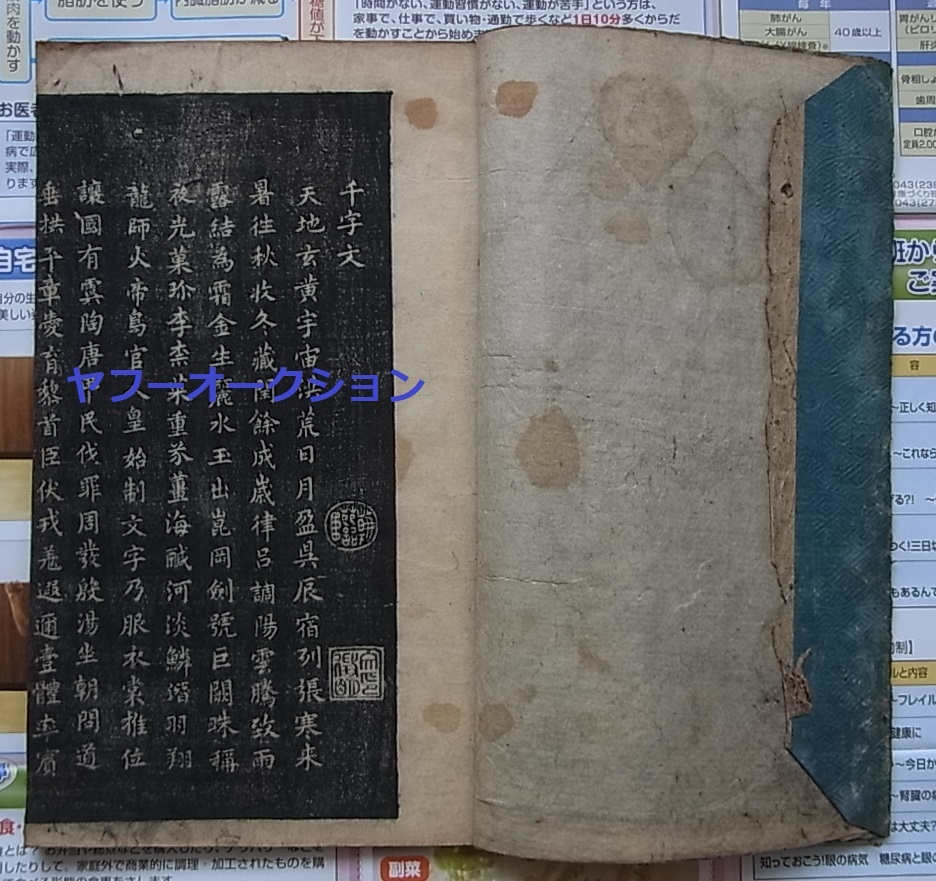 千字文
天地玄黄宇宙洪荒日月盈昃辰宿列張寒来
暑往秋收冬藏閏餘成歲律呂調陽雲騰致雨
露結為霜金生麗水玉出崑岡劍號巨闕珠稱
夜光菓珍李柰菜重芥薑海鹹河淡鱗潛羽翔
龍師火帝鳥官人皇始制文字乃服衣裳推位
讓國有虞陶唐弔民伐罪周發殷湯坐朝問道
垂拱平章愛育黎首臣伏戎羌遐邇壹體率賓
ヤフーオークション
脂肪を使う
内臓脂肪が減る
肉を動かす
「時間がない、運動習慣がない、運動が苦手」という方は、
家事で、仕事で、買い物・通勤で歩くなど1日10分多くからだ
を動かすことから始めま
毎年
肺がん
大腸がん
40歳以上
胃がん
肝炎
歯周
口腔が
定員2,00
043(238
043(27
お医者
「運動
病で広
実際、
ります
自宅
自分の生
美しい
から
ご
る方の
容
〜正しく知
〜これなら
る?!
く!三日
もあるんで
ルと内容
〜フレイル
健康に
〜今日か
〜腎臓の
は大丈夫?
知っておこう!眼の病気
糖尿病と眼の
副菜
食・
とは?
用したりして、家庭外で商業的に調理・加工されたものを購